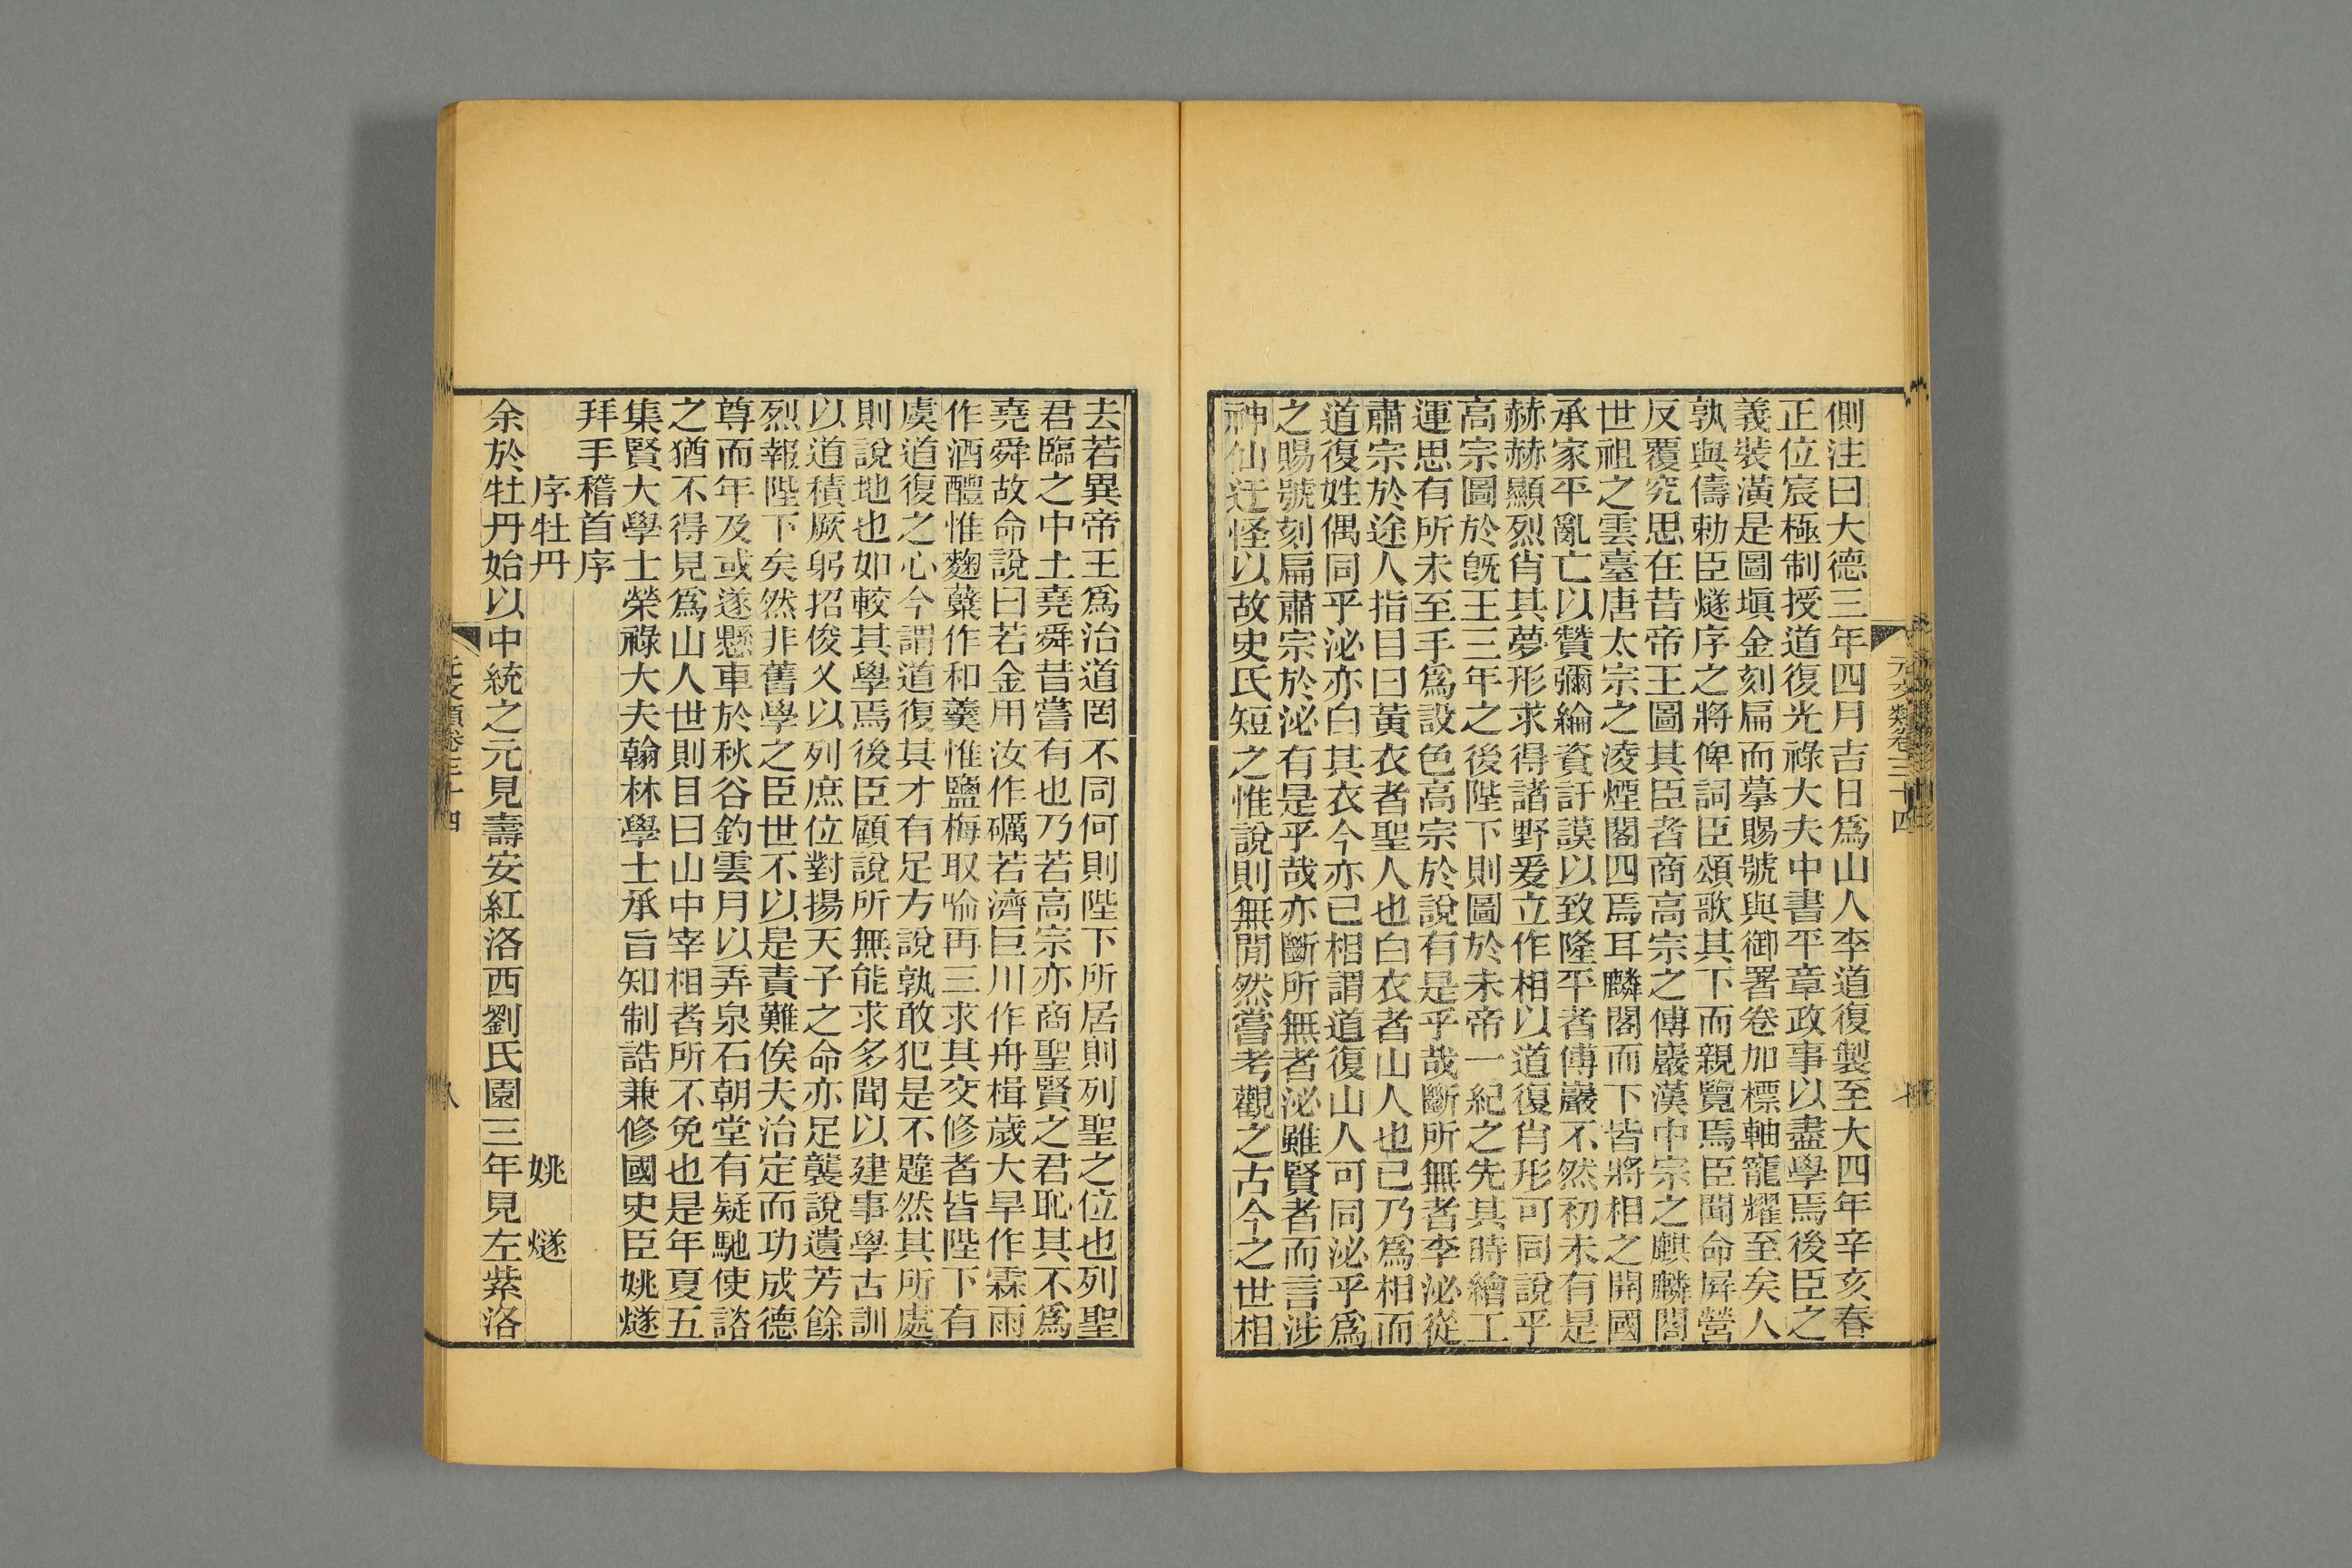 側注曰大德三年四月吉日爲山人李道復製至大四年辛亥春
正位宸極制授道復光祿大夫中書平章政事以盡學焉後臣之
義裝潢是圖塡金刻扁而摹賜號與御署卷加標軸寵耀至矣人
孰與儔勅臣燧序之將俾詞臣頌歌其下而親覽焉臣聞命屏營
反覆究思在昔帝王圖其臣者商高宗之傅巖漢中宗之麒麟閣
世祖之雲臺唐太宗之淩煙閣四焉耳麟閣而下皆將相之開國
承家平亂亡以贊彌綸資訏謨以致隆平者傅巖不然初未有是
赫赫顯烈肖其夢形求得諸野爰立作相以道復肖形可同說乎
高宗圖於旣王三年之後陛下則圖於未帝一紀之先其時繪工
運思有所未至手爲設色高宗於說有是乎哉斷所無者李泌從
肅宗於途人指目曰黃衣者聖人也白衣者山人也已乃爲相而
道復姓偶同乎泌亦白其衣今亦已相謂道復山人可同泌乎爲
之賜號刻扁肅宗於泌有是乎哉亦斷所無者泌雖賢者而言涉
神仙迂怪以故史氏短之惟說則無閒然嘗考觀之古今之世相
元文類卷三十四
七
去若異帝王爲治道罔不同何則陛下所居則列聖之位也列聖
君臨之中土堯舜昔嘗有也乃若高宗亦商聖賢之君恥其不爲
堯舜故命說曰若金用汝作礪若濟巨川作舟楫歲大旱作霖雨
作酒醴惟麴糵作和羹惟鹽梅取喻再三求其交修者皆陛下有
虞道復之心今謂道復其才有足方說孰敢犯是不韙然其所處
則說地也如較其學焉後臣顧說所無能求多聞以建事學古訓
以道積厥躬招俊乂以列庶位對揚天子之命亦足襲說遺芳餘
烈報陛下矣然非舊學之臣世不以是責難俟夫治定而功成德
尊而年及或遂懸車於秋谷釣雲月以弄泉石朝堂有疑馳使諮
之猶不得見爲山人世則目曰山中宰相者所不免也是年夏五
集賢大學士榮祿大夫翰林學士承旨知制誥兼修國史臣姚燧
拜手稽首序
序牡丹　姚燧
余於牡丹始以中統之元見壽安紅洛西劉氏園三年見左紫洛
元文類卷三十四
八